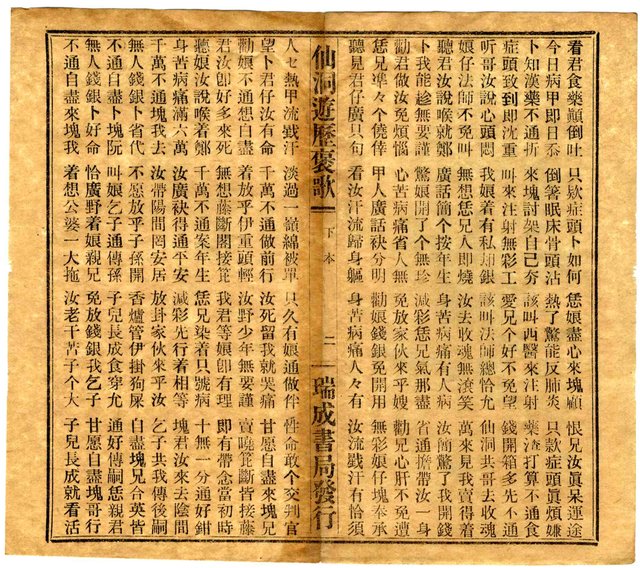 看君食藥顛倒吐　只欵症頭卜如何　恁娘盡心來塊顧　恨兄汝眞呆運途
今日病甲即日忝　倒箸眠床骨頭沾　熱了驚能反肺炎　只欵症頭眞煩嫌
卜知漢藥不通折　來塊討架自己夯　該叫西醫來注射　藥渣打算不通食
症頭致到即沈重　叫來注射無彩工　愛兄个好不免望　錢開箱多先不通
听哥汝說心頭悶　我娘着有私知銀　該叫法師總恰允　仙洞共哥去收魂
娘仔法師不免叫　無想恁兄人即燒　汝去收魂無滾笑　萬來見我賣得着
聽君汝說喉就鄭　廣話簡个按年生　身苦病痛有人病　汝簡驚了我開錢
卜我能趁無要謹　驚娘開了个無珍　減彩恁兄氣那盡　省通擔帶汝一身
勸君做汝免煩惱　心苦病痛省人無　免放家伙來乎嫂　勸兄心肝不免遭
恁兄準々个僥倖　甲人廣話袂分明　勸娘錢銀免開用　無彩娘仔塊奉承
聽見君仔廣只句　看汝汗流歸身軀　身苦病痛人々有　汝流戥汗有恰須
仙洞遊歷褒歌　下本　二　瑞成書局發行
人乜熱甲流戥汗　淡過嶺綿被單　只久有娘通做伴　性命敢个交判官
望卜君仔汝有命　千萬不通做前行　汝死留我就哭痛　甘愿自盡來塊兄
勸娘不通想自盡　着放乎伊重頭輕　汝野少年無要謹　賣曉笼斷皆接藤
君汝卽好多來死　無想藤斷閣接笼　我君等娘卽有理　即有帶念當初時
聽娘汝說喉着鄭　千萬不通案年生　恁兄染着只號病　十無一分通好鉗
身苦病痛滿六萬　汝廣袂得通平安　減彩先行着相等　塊君汝來去陰間
千萬不通塊我去　汝帶陽間閣安居　放卦家伙來乎汝　乞子共我傳後嗣
無人錢銀卜省代　不愿放乎子孫開　香爐管伊掛狗屎　自盡塊兄合英皆
不通自盡卜塊阮　叫娘乞子通傳孫　子兒長成食穿允　通好傳嗣恁親君
無人錢銀卜好命　恰廣野着娘親兄　免放錢銀我乞子　甘愿自盡塊哥行
不通自盡來塊我　着想公婆一大拖　汝老干苦子个大　子兒長成就看活